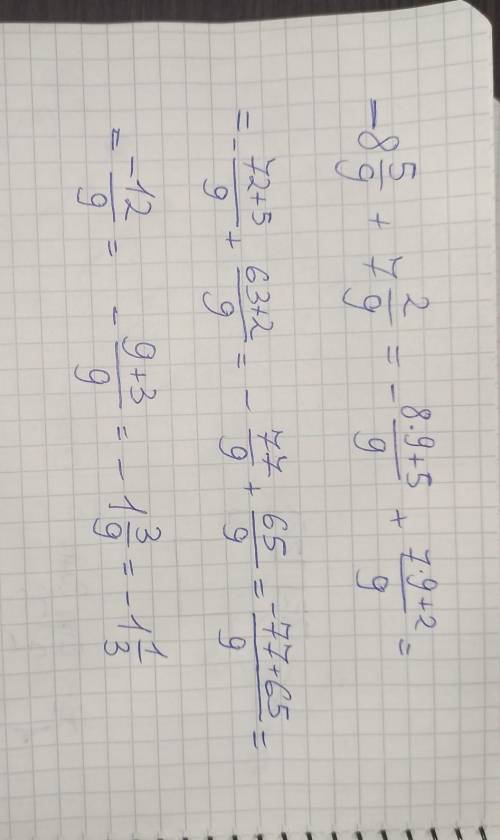 -8 5/9 + 7 2/9 = - (8·9+5)/9 + (7·9+2)/9 =
= - (72+5)/9 + (63+2)/9 = - 77/9 + 65/9 = (-77+65)/9 =
= -12/9 = - (9+3)/9 = -1 3/9 = -1 1/3